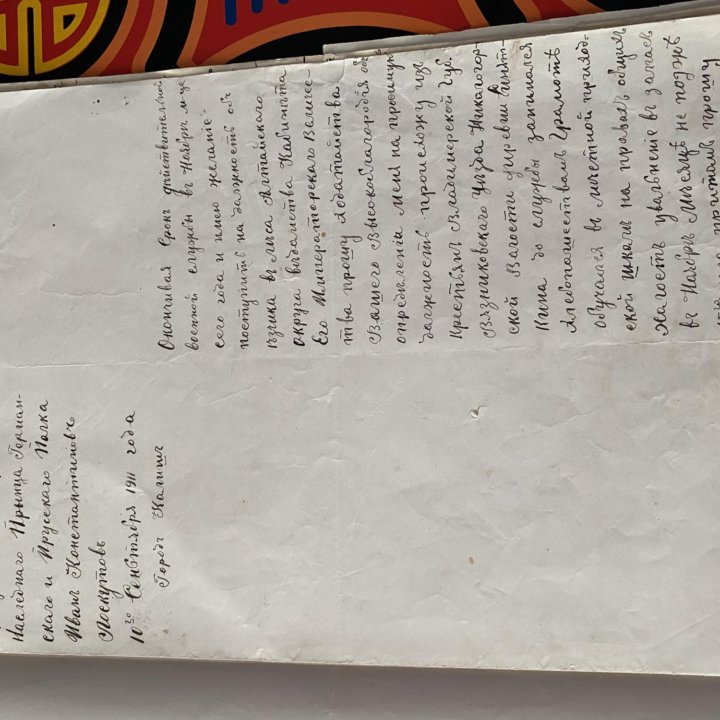 Наследнаго Прынца Герман-
скаго и Прусскаго Полка
Иванъ Константиновъ
Лоскутовъ
10го Сентября 1911 года
Городъ Калишъ
Окончивая Срокъ действительной
военной службы въ Ноябрѣ м-це
сего года и имѣю желаніе
поступить на должность объ
ѣзчика въ лиса Алтайскаго
округа вѣдамства Кабинѣта
Его Императорскаго Величе-
тва прошу ходатайства
Вашего Высокоблагородія объ
опредѣленіи Меня на просимую
должность происхожу изъ
крестьянъ Владимерской Губ.
Вязниковскаго Уѣзда Никологор-
ской Валости деревни
Кина до службы занимался
хлебопашествамъ Грамотѣ
обучался въ мѣстной приход-
ской школѣ на правахъ общих
Жалость увальнение въ запасъ
въ Ноябрѣ Мѣсяцѣ не поздиѣ
прошу